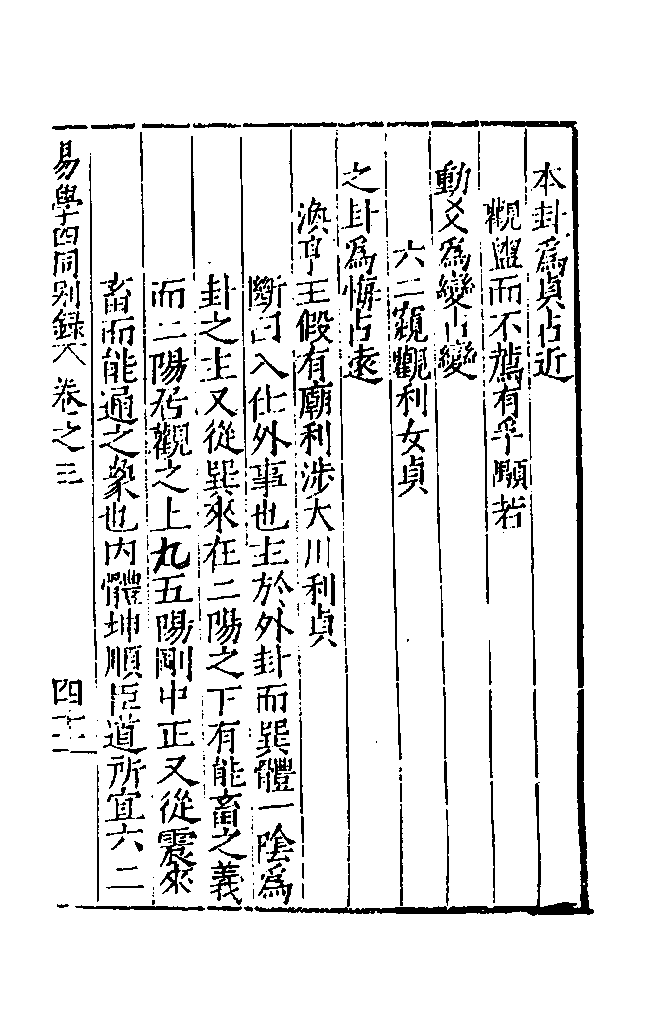 本卦爲貞占近
觀盥而不薦有孚顒若
動爻爲變占變
六二䂓觀利女貞
之卦爲悔占遠
渙亨王假有廟利涉大川利貞
斷曰入仕外事也主於外卦而巽體一陰爲
卦之主又從巽來在二陽之下有能畜之義
而二陽居觀之上九五陽剛中正又從震來
畜而能通之象也内體坤順臣道所宜六二
易學四同别録 卷之三